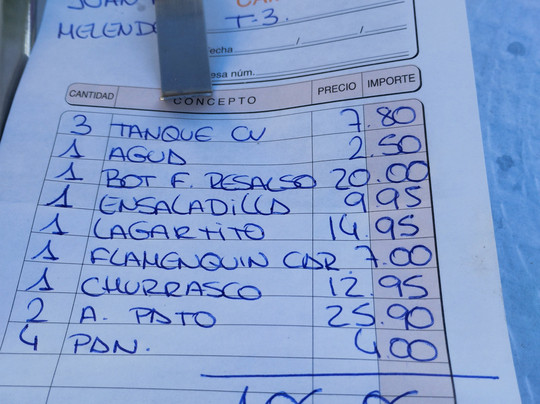 JUAN
MELEND T-3.
echa / /
esa núm.
CANTIDAD CONCEPTO PRECIO IMPORTE
3 TANQUE CV 7.80
1 AGUA 2.50
1 BOT F. PESALSO 20.00
1 ENSALADILLA 9.95
1 LAGARTITO 14.95
1 FLAMENQUIN CAR. 7.00
1 CHURRASCO 12.95
2 A. PATO 25.90
4 PAN. 4.00